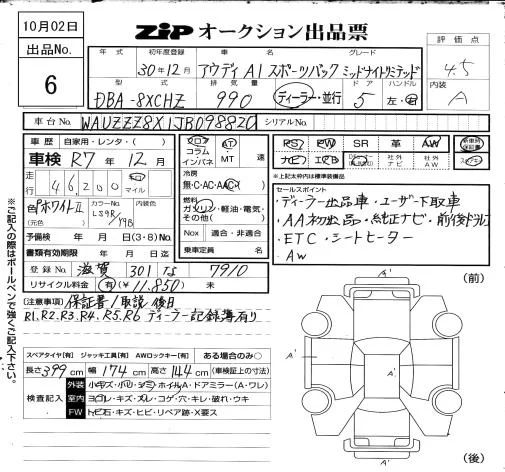 10月02日
ZiP オークション出品票
出品No.
6
年式 初年度登録 車名 グレード
30年12月 アウディ A1 スポーツバック ミッドナイトリミテッド
型式 排気量 ドア ハンドル
DBA-8XCHZ 990 ディーラー・並行 5 左・右
評価点
4.5
内装
A
車台No. WAUZZZ8X1JB098820 シリアルNo.
車歴 自家用・レンタ・( )
車検 R7年12月
走行 46200 キロ マイル
色 ホワイトII (元色) カラーNo. LS9R/Y9B 内装色
予備検 年 月 日(3・8)No.
書類有効期限 年 月 日迄
登録No. 滋賀 301 な 7910
リサイクル料金 有(¥11,850) 未
フロア コラム インパネ AT MT 速
冷房 無・C・AC・AAC
燃料 ガソリン・軽油・電気・その他( )
Nox 適合・非適合
乗車定員 名
PS PW SR 革 AW
ナビ エアB 社外ナビ 社外AW
*上記太枠内は標準装備品
セールスポイント
・ディーラー出品車・ユーザー下取車
・AA初出品・純正ナビ・前後ドラレコ
・ETC・シートヒーター
・AW
(注意事項) 保証書/取説 後日
R1.R2.R3.R4.R5.R6 ディーラー記録簿有り
スペアタイヤ[有] ジャッキ工具[有] AWロックキー[有] ある場合のみ○
長さ399cm 幅174cm 高さ144cm (車検証上の寸法)
検査記入
外装 小キズ・小凹・シミ・ホイルA・ドアミラー(A・ワレ)
室内 ヨゴレ・キズ・スレ・コゲ・穴・キレ・破れ・ウキ
FW トビ石・キズ・ヒビ・リペア跡・X要ス
※ご記入の際はボールペンで強くご記入下さい。
(前)
A'
A'
A'
(後)